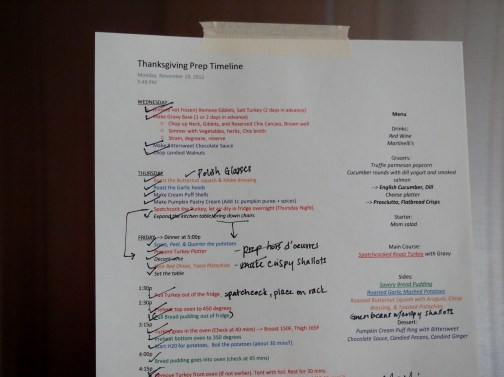 Thanksgiving Prep Timeline
Monday, November 19, 2012
5:49 PM
WEDNESDAY
(If not frozen) Remove Giblets, Salt Turkey (2 days in advance)
Make Gravy Base (1 or 2 days in advance)
Chop up Neck, Giblets, and Reserved Chix Carcass, Brown well
Simmer with Vegetables, herbs, Chix broth
Strain, degrease, reserve
Make Bittersweet Chocolate Sauce
Chop candied Walnuts
THURSDAY
Polish Glasses
Roast the Butternut Squash & Make dressing
Roast the Garlic heads
Make Cream Puff Shells
Make Pumpkin Pastry Cream (Add 1c pumpkin puree + spices)
Spatchcock the Turkey, let air dry in fridge overnight (Thursday Night)
Expand the kitchen table/bring down chairs
FRIDAY --> Dinner at 5:00p
Scrub, Peel, & Quarter the potatoes
Prepare Turkey Platter
prep hors d'oeuvres
Decant wine
Slice Red Onion, Toast Pistachios
make crispy shallots
Set the table
1:30p
Pull Turkey out of the fridge
spatchcock, place on rack
2:30p
Preheat top oven to 450 degrees
Pull Bread Pudding out of fridge
3:15p
Turkey goes in the oven (Check at 40 mins) --> Breast 150F, Thigh 165F
Preheat bottom oven to 350 degrees
Start H20 for potatoes. Boil the potatoes (about 30 mins?)
4:00p
Bread pudding goes into oven (Check at 45 mins)
4:15p
Remove Turkey from oven (if not earlier). Tent with foil. Rest for 30 mins.
Menu
Drinks:
Red Wine
Martinelli's
Graces:
Truffle parmesan popcorn
Cucumber rounds with dill yogurt and smoked
salmon
--> English Cucumber, Dill
Cheese platter
--> Prosciutto, Flatbread Crisps
Starter:
Main Course:
Spatchcocked Roast Turkey with Gravy
Sides:
Savory Bread Pudding
Roasted Garlic Mashed Potatoes
Roasted Butternut Squash with Arugula, Citrus
dressing, & Toasted Pistachios
Green beans w/ crispy shallots
Dessert:
Pumpkin Cream Puff Ring with Bittersweet
Chocolate Sauce, Candied Pecans, and Candied Ginger